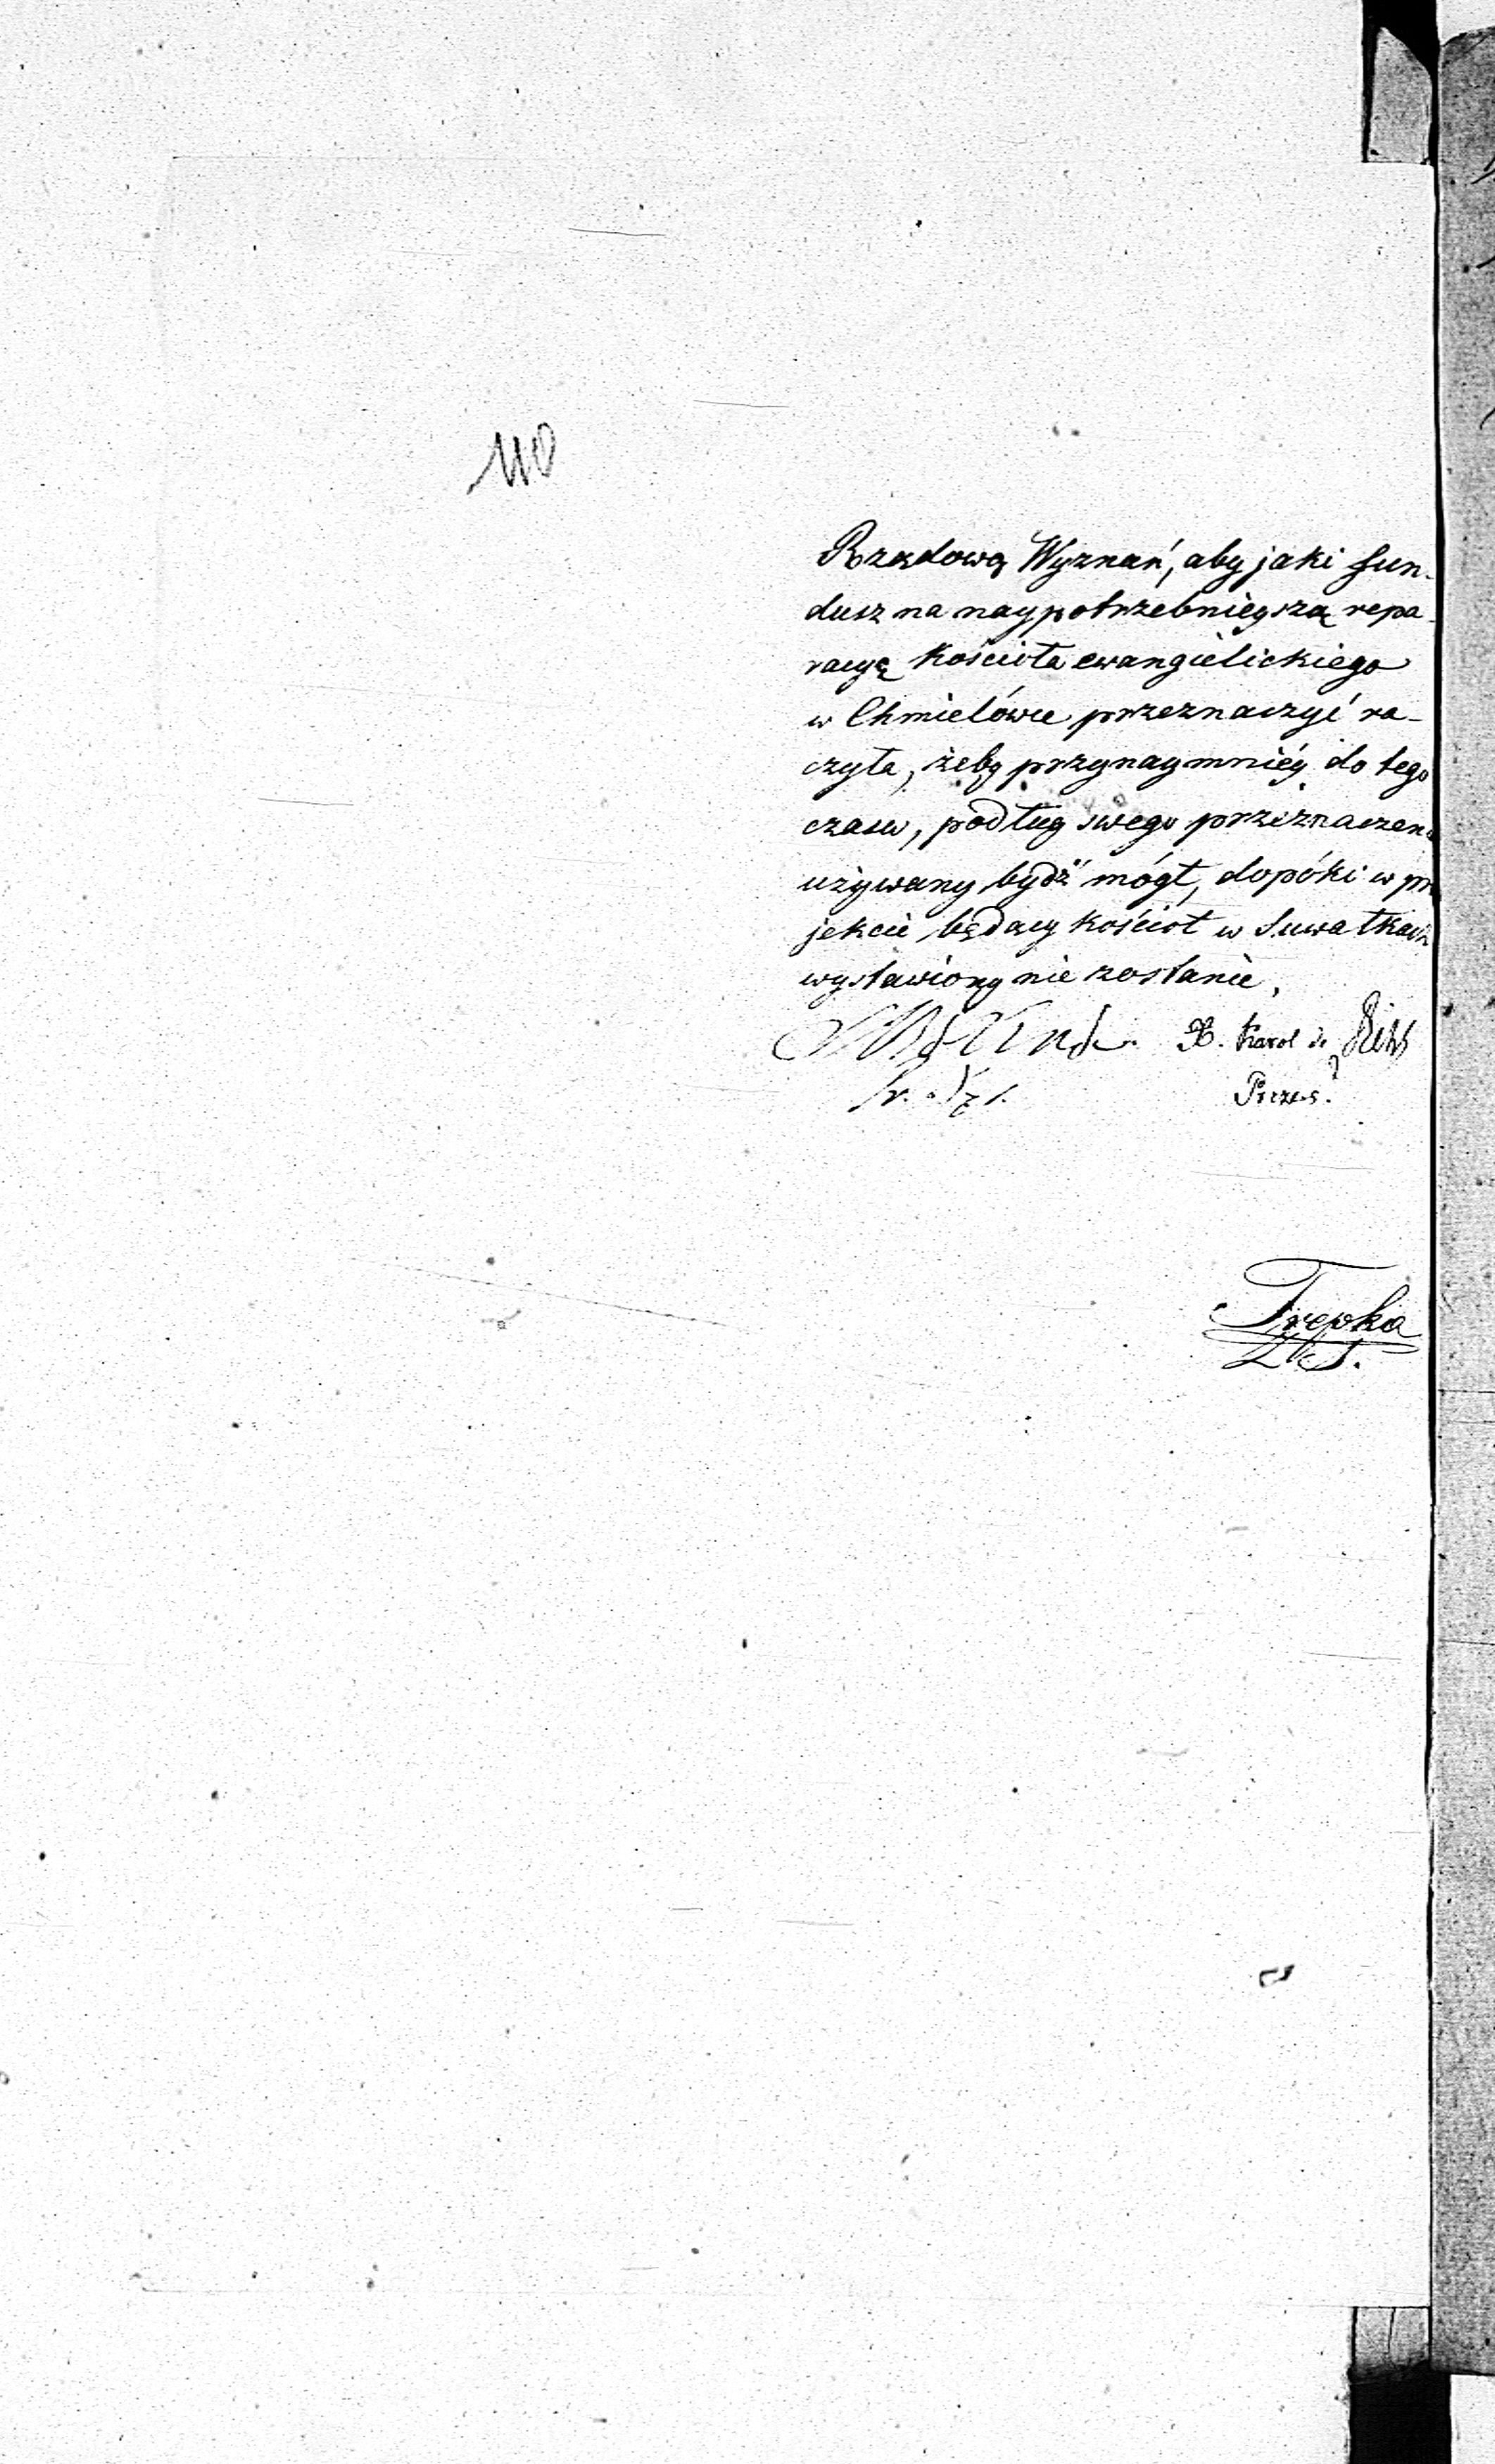 110
Rządową Wyznań, aby jaki fun-
dusz na naypotrzebnieyszą repa-
racyę kościoła ewangielickiego
w Chmielówce przeznaczyć ra-
czyła, żeby przynaymniéy do tego
czasu, podług swego przeznaczeni
używany bydź mógł, dopóki w pr
jekcie będący kościoł w Suwałkach
wystawiony nie zostanie,
X. Karol de
Prezes.
Trepka